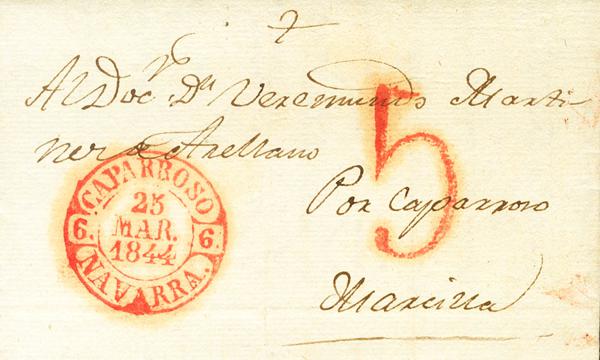 Al Doc.r Dn Veremundo Marti-
nez de Arellano
5
Por Caparroso
Marcilla
CAPARROSO
25
MAR.
1844
6. 6.
NAVARRA.